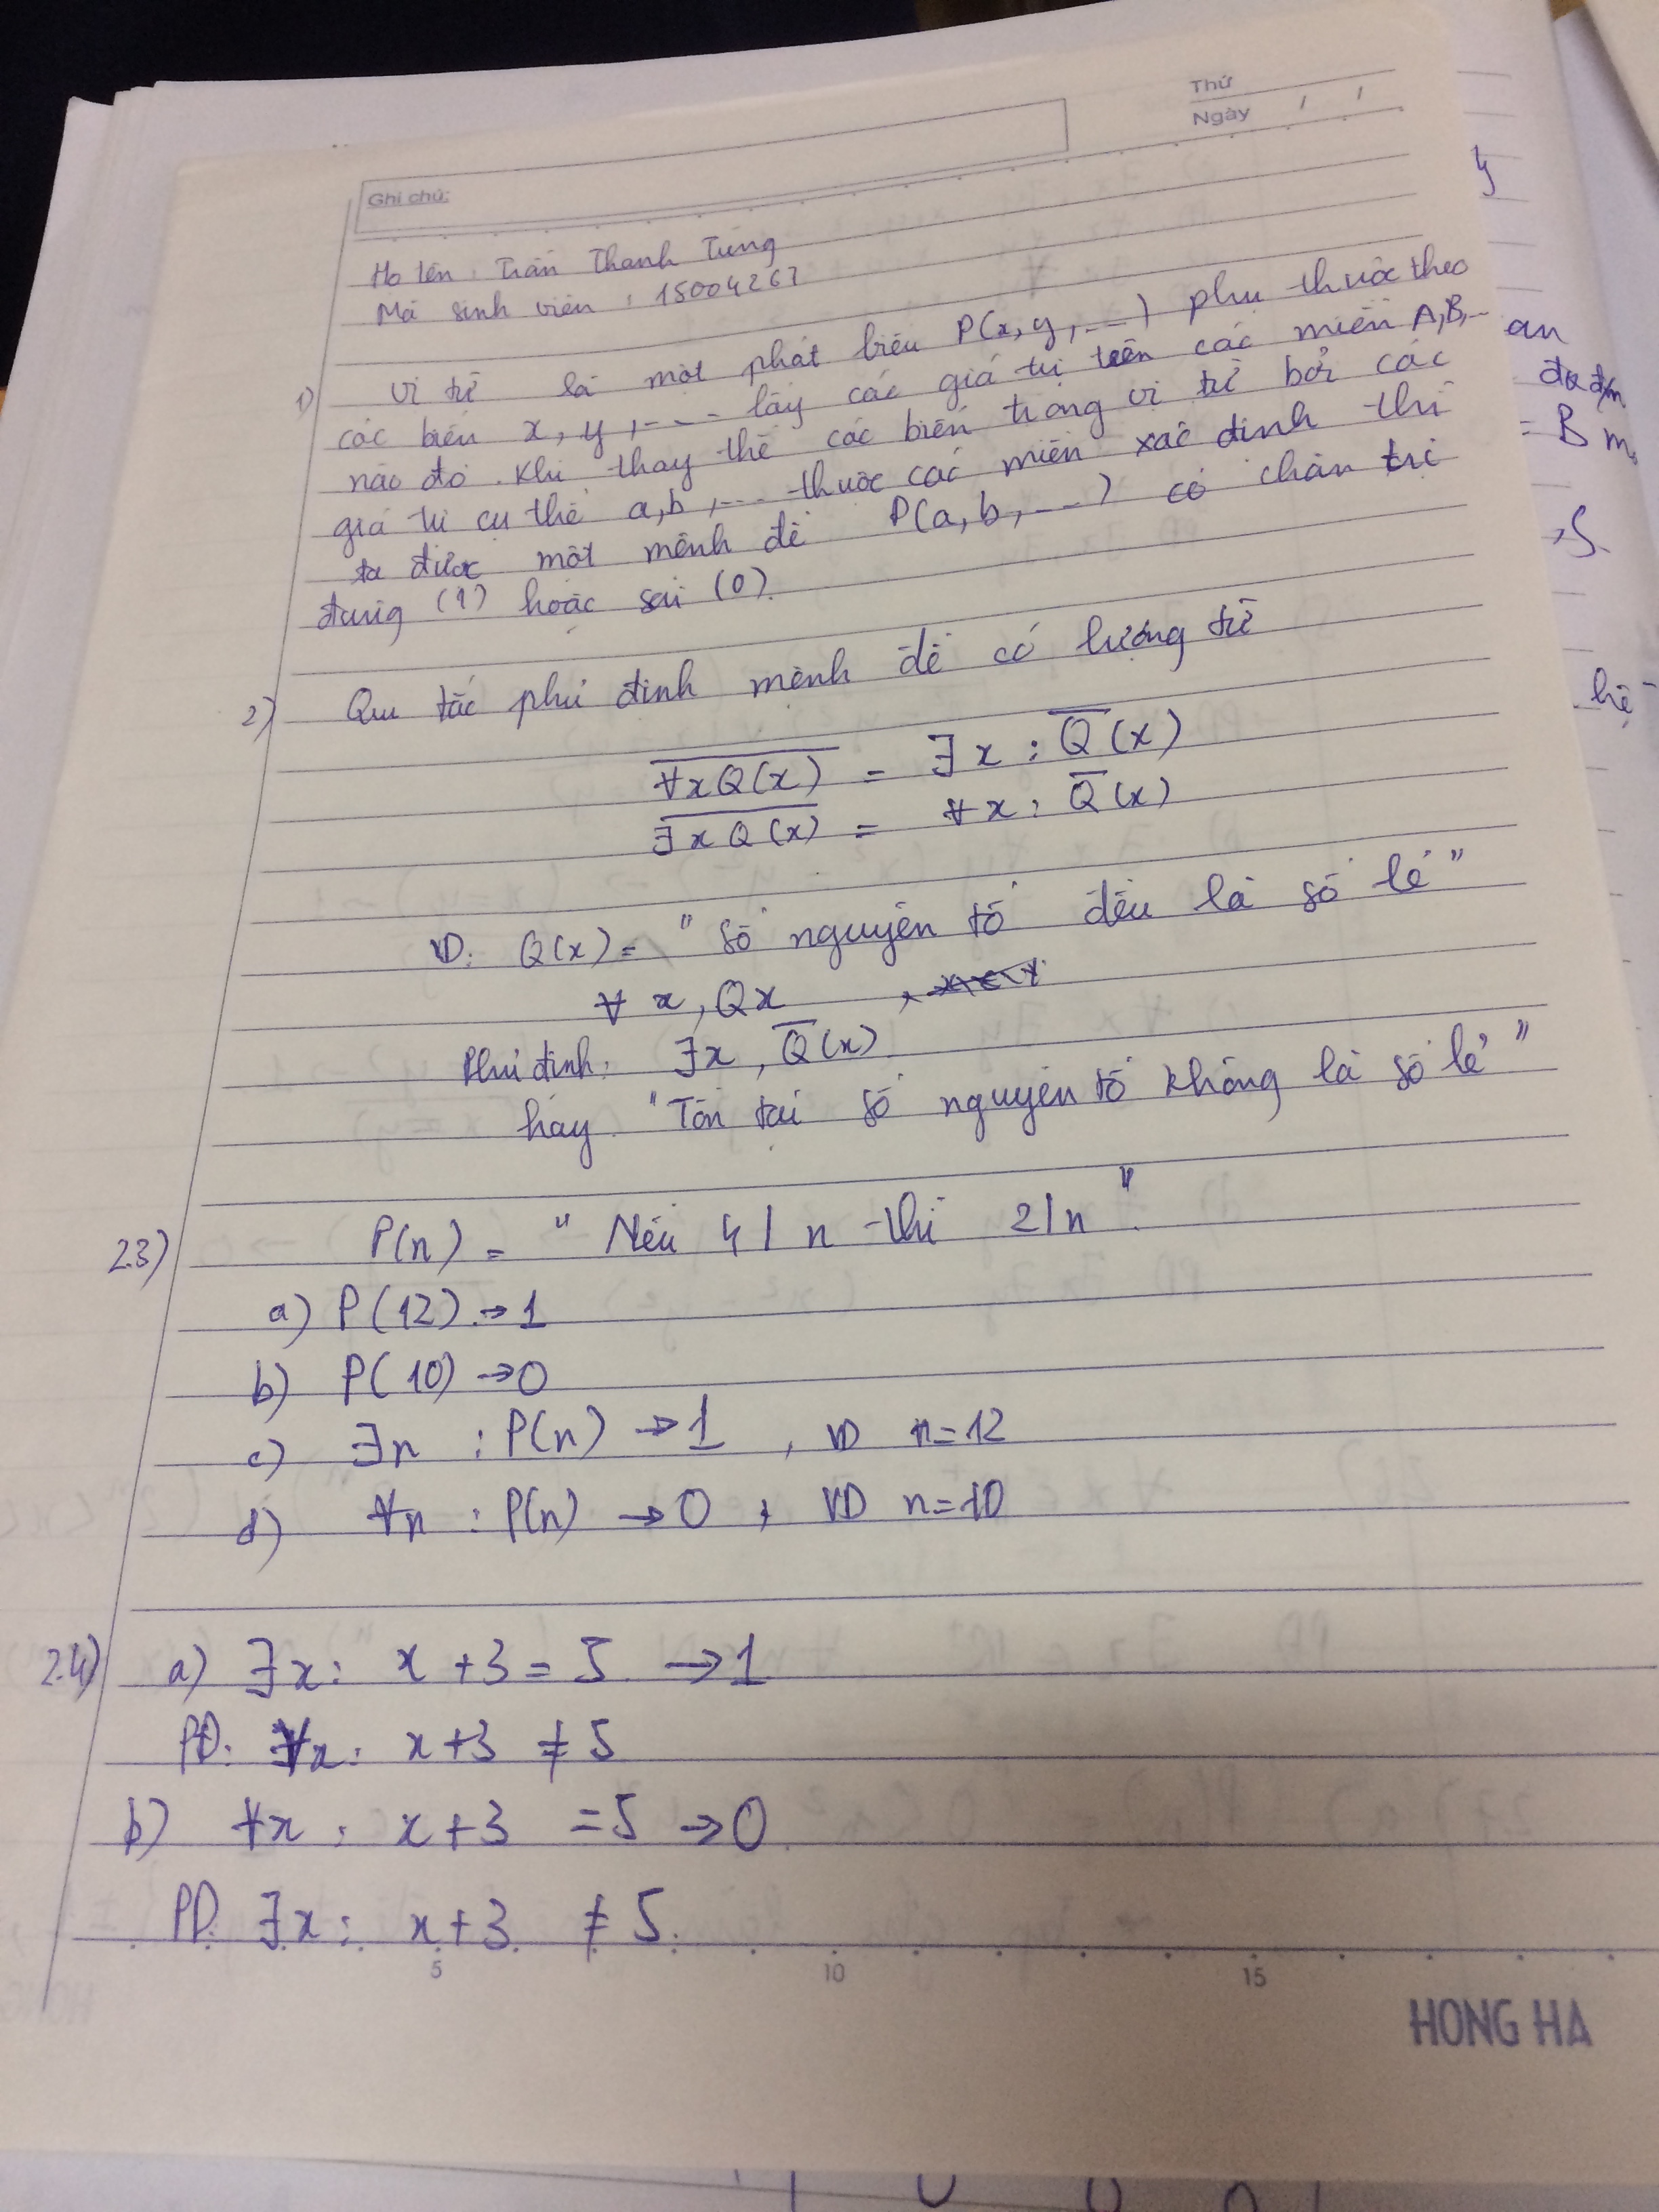 Thứ
Ngày / /
Ghi chú:
Họ tên : Trần Thanh Tùng
Mã sinh viên : 15004267
1) Vị từ là một phát biểu P(x, y, ...) phụ thuộc theo
các biến x, y, ... lấy các giá trị trên các miền A, B, ..
nào đó. Khi thay thế các biến trong vị từ bởi các
giá trị cụ thể a, b, ... thuộc các miền xác định thì
ta được một mệnh đề P(a, b, ...) có chân trị
đúng (1) hoặc sai (0).
2) Qui tắc phủ định mệnh đề có lượng từ
\overline{∀x Q(x)} = ∃x : \overline{Q}(x)
\overline{∃x Q(x)} = ∀x : \overline{Q}(x)
VD: Q(x) = " số nguyên tố đều là số lẻ "
∀ x, Qx ,
Phủ định: ∃x, \overline{Q}(x)
hay "Tồn tại số nguyên tố không là số lẻ"
2.3) P(n) = " Nếu 4 | n thì 2 | n "
a) P(12) → 1
b) P(10) → 0
c) ∃n : P(n) → 1 , VD n=12
d) ∀n : P(n) → 0 , VD n=10
2.4) a) ∃x: x + 3 = 5 → 1
PĐ: ∀x: x+3 ≠ 5
b) ∀x: x+3 = 5 → 0
PĐ. ∃x: x+3 ≠ 5.
5 10 15
HONG HA
y
an
= B m
hệ